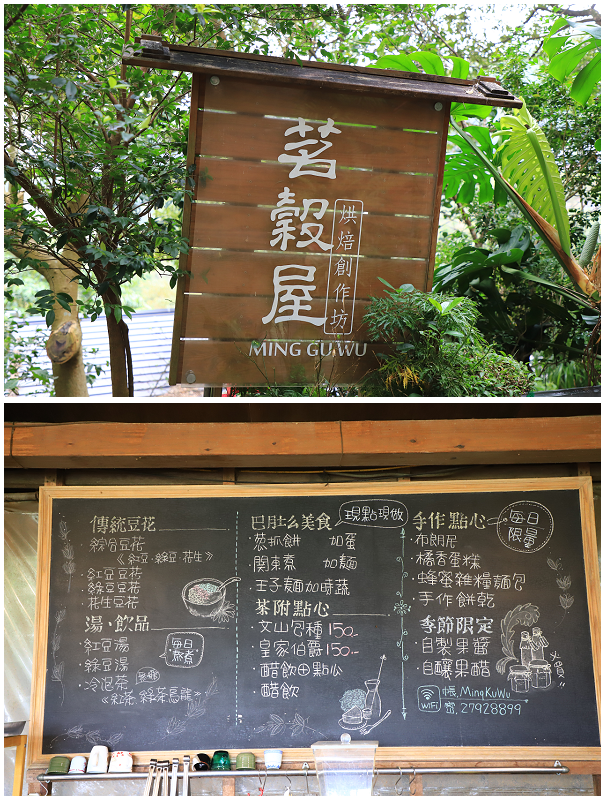 茗穀屋
烘焙創作坊
MING GU WU
傳統豆花
綜合豆花
《紅豆·綠豆·花生》
·紅豆豆花
·綠豆豆花
·花生豆花
湯·飲品
·紅豆湯
·綠豆湯
·冷泡茶
《紅茶、綠茶、烏龍》
每日熬煮
巴肚么美食
現點現做
·蔥抓餅 加蛋
·関東煮 加麵
·王子麵加時蔬
茶附點心
·文山包種 150
·皇家伯爵 150
·醋飲田點心
·醋飲
手作點心
每日限量
·布朗尼
·橘香蛋糕
·蜂蜜雜糧麵包
·手作餅乾
季節限定
·自製果醬
·自釀果醋
WiFi
帳.MingKuWu
密.27928899